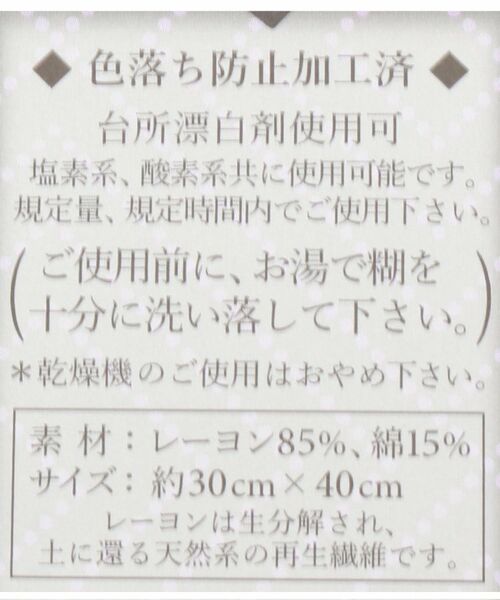 ◆ 色落ち防止加工済 ◆
台所漂白剤使用可
塩素系、酸素系共に使用可能です。
規定量、規定時間内でご使用下さい。
(ご使用前に、お湯で糊を
十分に洗い落して下さい。)
＊乾燥機のご使用はおやめ下さい。
素 材：レーヨン85%、綿15%
サイズ：約30cm×40cm
レーヨンは生分解され、
土に還る天然系の再生繊維です。